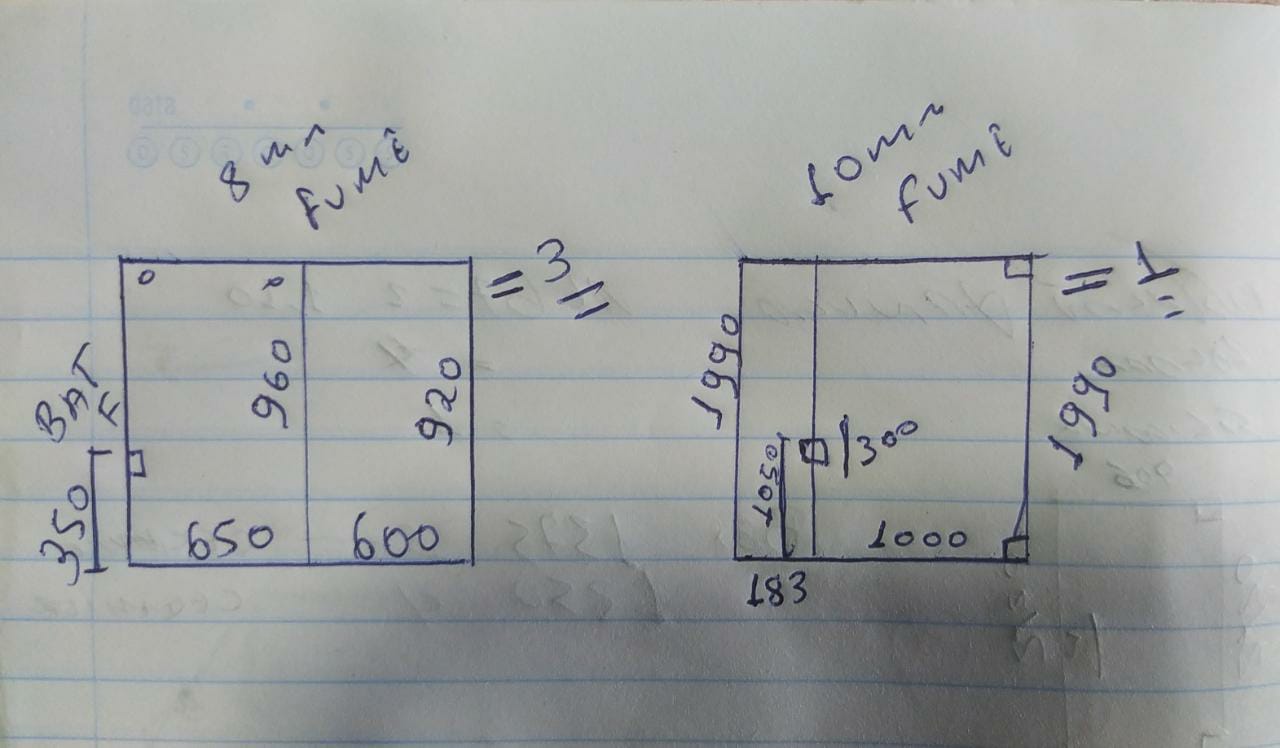 8 mm
fumê
= 3 =
BAT
F
960
920
350
650
600
10 mm
fumê
= 1 =
1990
1990
300
1050
1000
183